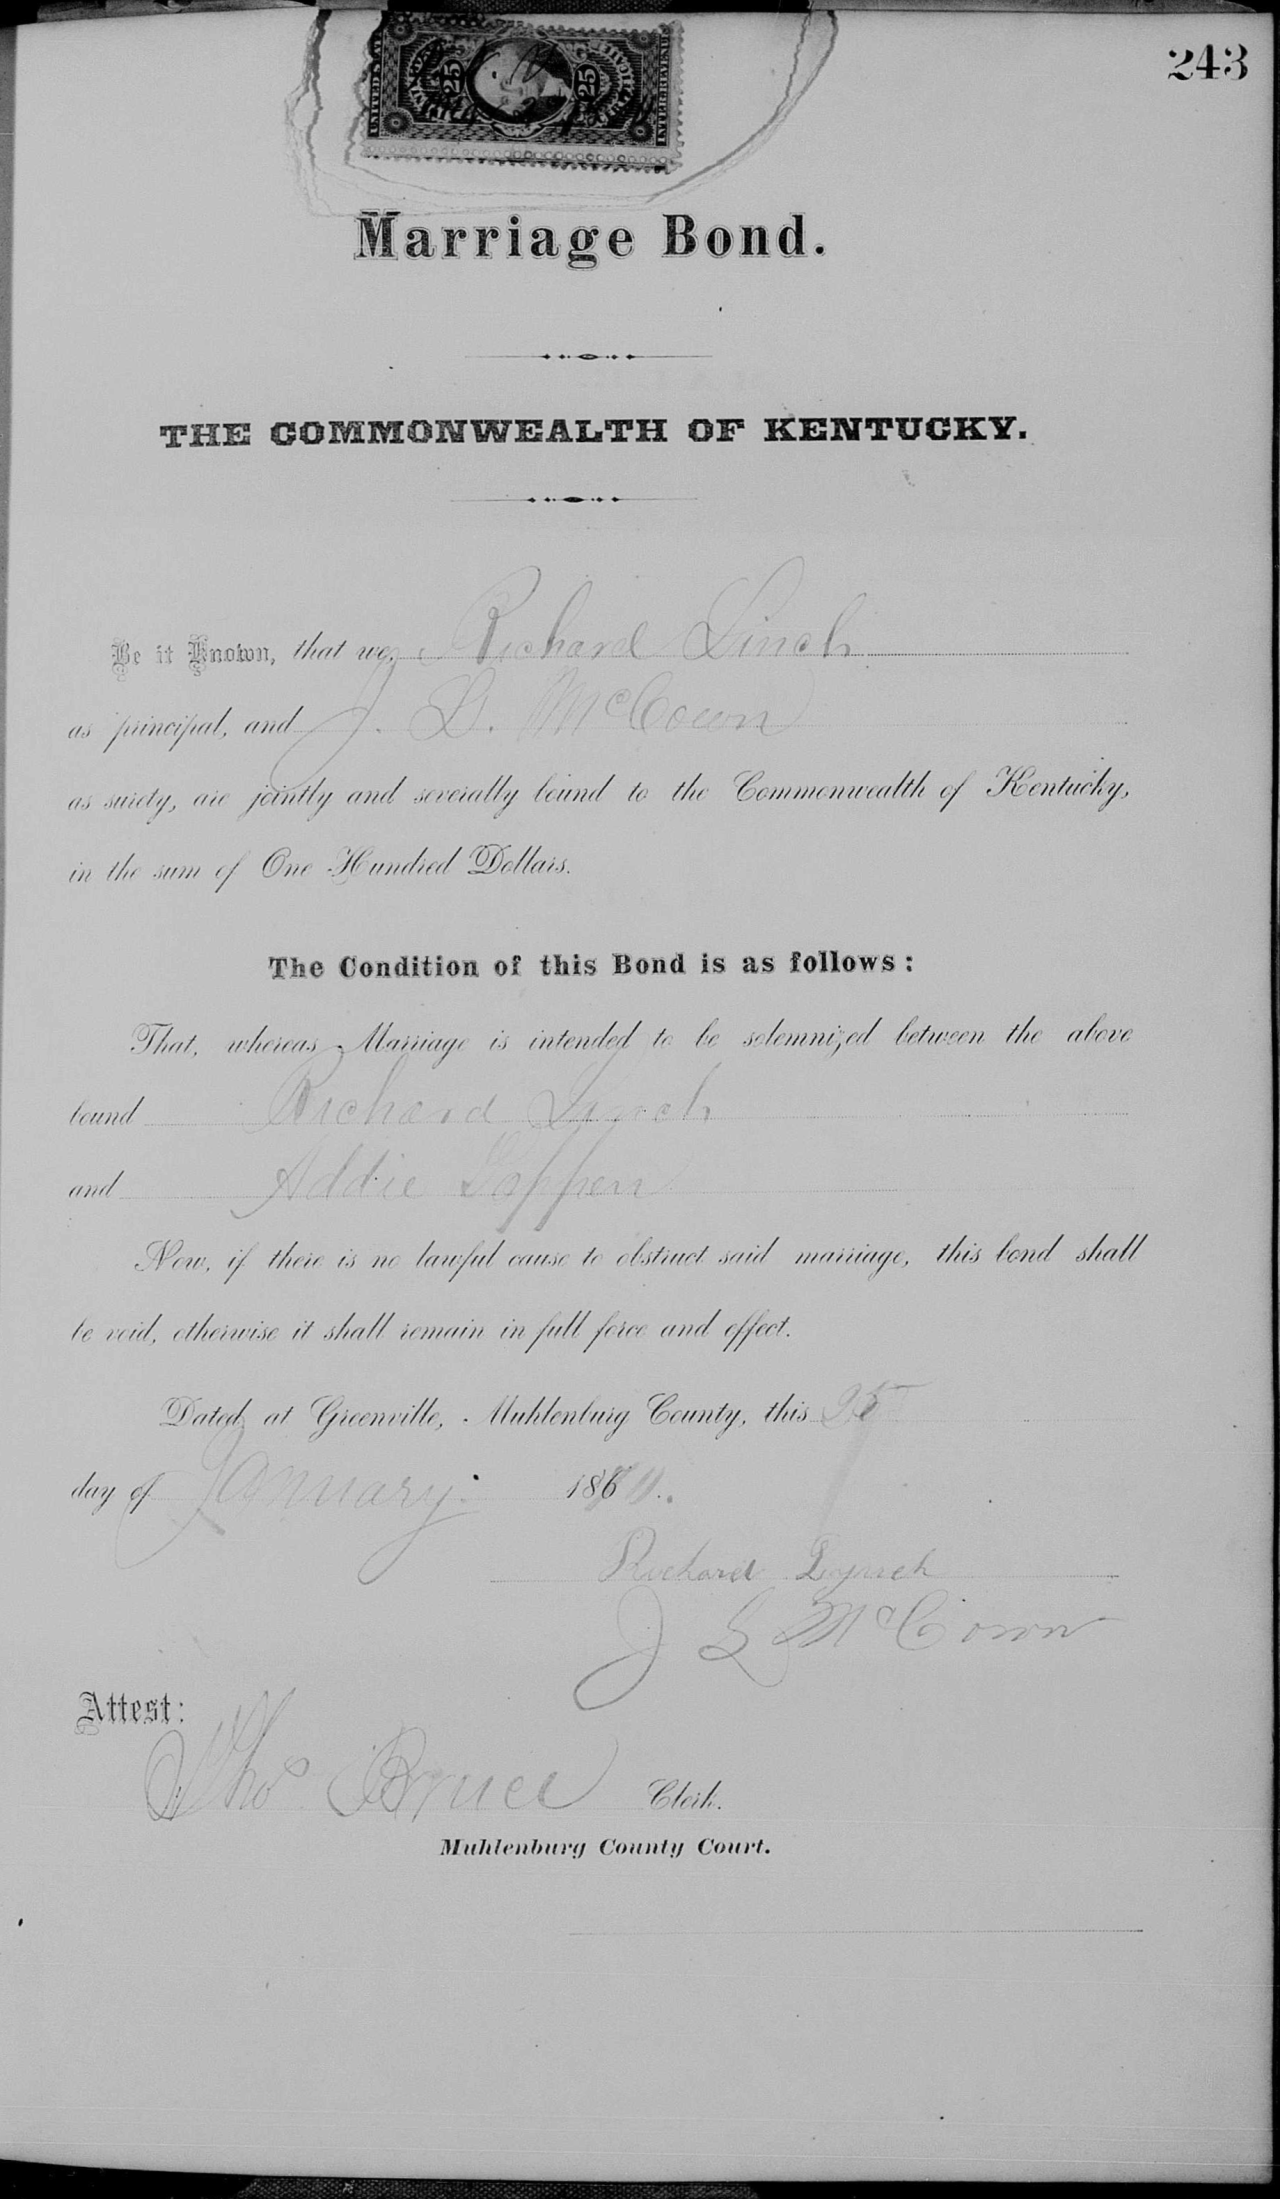 243
25 25
Marriage Bond.
THE COMMONWEALTH OF KENTUCKY.
Be it Known, that we, Richard Linch
as principal, and J. L. McCown
as surety, are jointly and severally bound to the Commonwealth of Kentucky,
in the sum of One Hundred Dollars.
The Condition of this Bond is as follows:
That, whereas Marriage is intended to be solemnized between the above
bound Richard Linch
and Addie
Now, if there is no lawful cause to obstruct said marriage, this bond shall
be void, otherwise it shall remain in full force and effect.
Dated at Greenville, Muhlenburg County, this 25
day of January
Richard Lynch
J L McCown
Attest:
Thos Bruce Clerk.
Muhlenburg County Court.